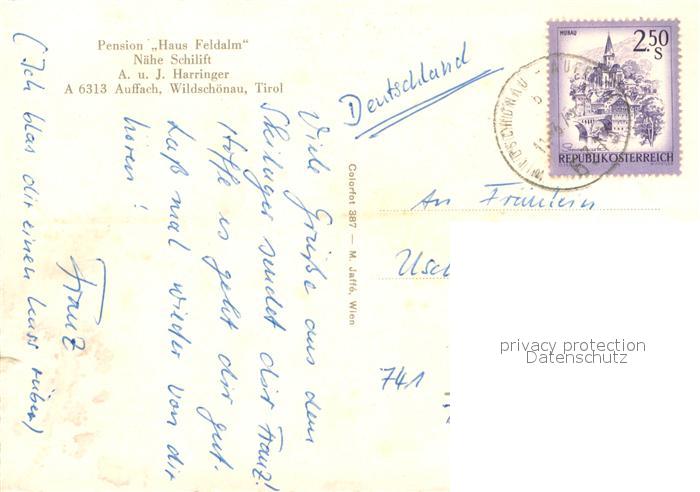 Pension „Haus Feldalm“
Nähe Schilift
A. u. J. Harringer
A 6313 Auffach, Wildschönau, Tirol
Viele Grüße aus dem
Skilager sendet dir Franz!
Hoffe es geht dir gut.
Laß mal wieder von dir
hören!
Franz
(Ich blas dir einen Kuss rüber)
Colorfot 387 — M. Jaffé, Wien
Deutschland
MURAU
2.50
S
REPUBLIK ÖSTERREICH
WILDSCHÖNAU - AUFF
An Fräulein
Usch
741
privacy protection
Datenschutz